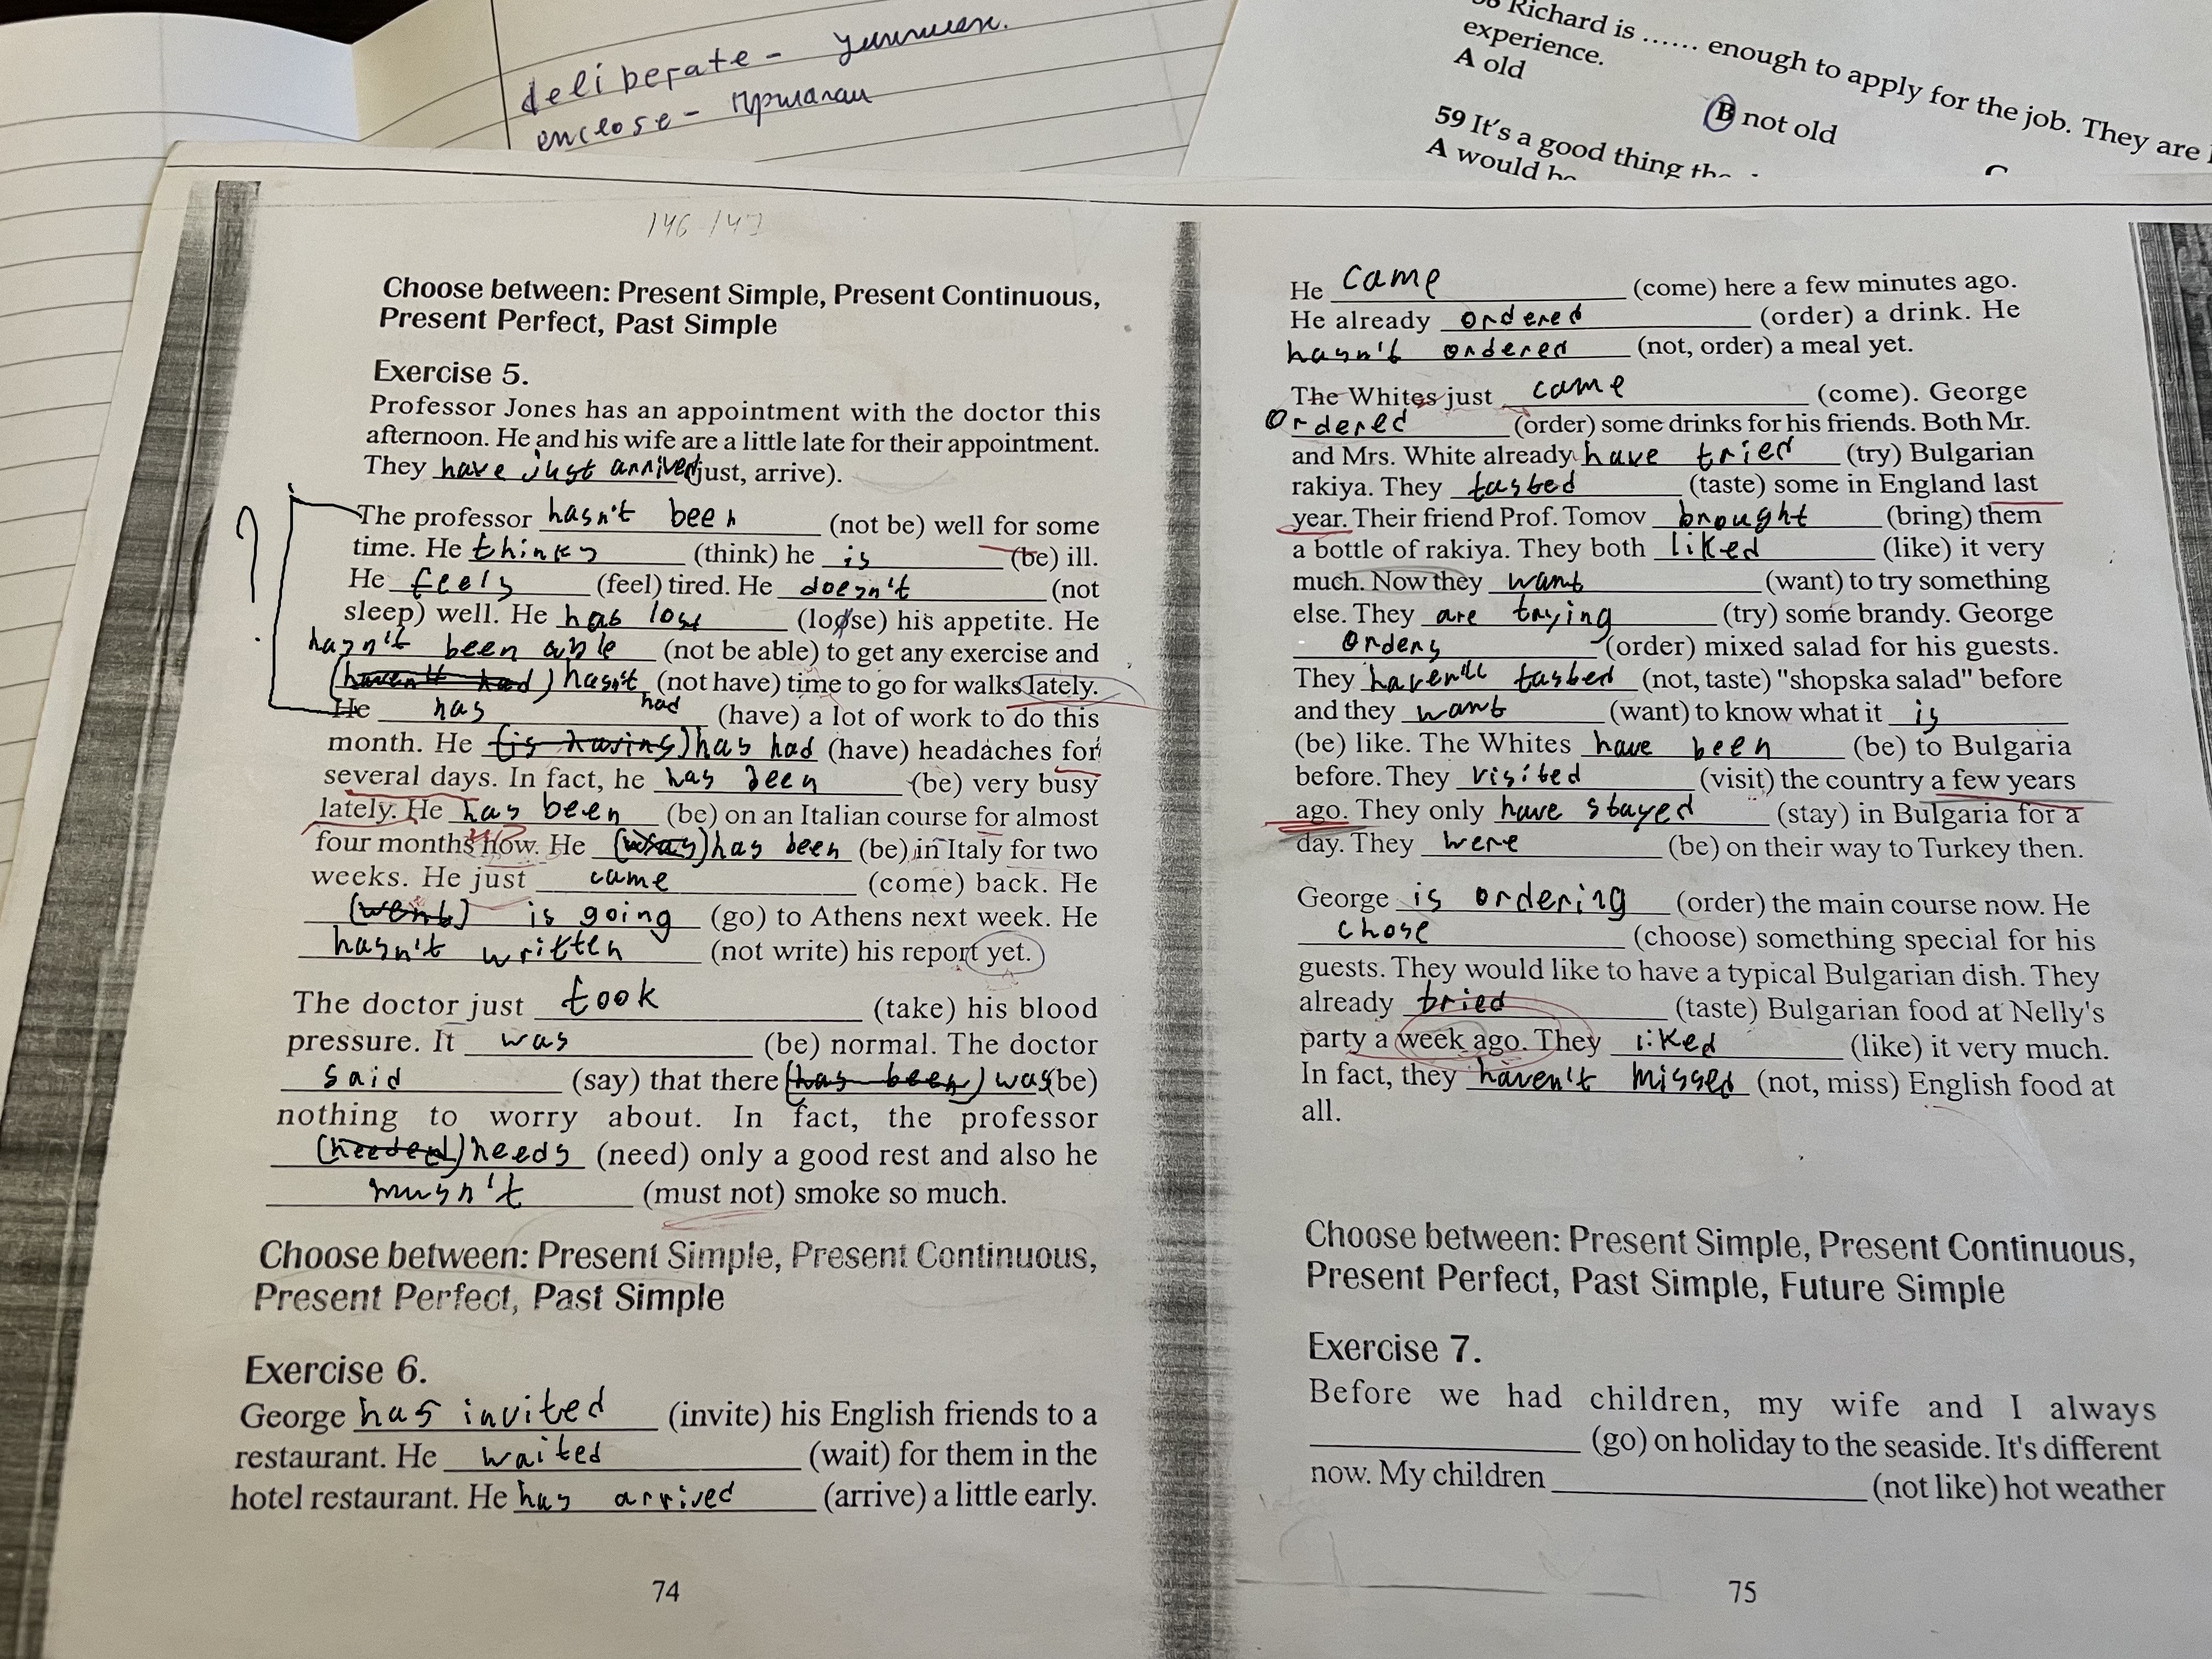 deliberate -
enclose -
58 Richard is ...... enough to apply for the job. They are
experience.
A old
B not old
59 It's a good thing the
A would be
C
146 / 147
Choose between: Present Simple, Present Continuous,
Present Perfect, Past Simple
Exercise 5.
Professor Jones has an appointment with the doctor this
afternoon. He and his wife are a little late for their appointment.
They have just arrived (just, arrive).
?
The professor hasn't been (not be) well for some
time. He thinks (think) he is (be) ill.
He feels (feel) tired. He doesn't (not
sleep) well. He has lost (loose) his appetite. He
hasn't been able (not be able) to get any exercise and
(haven't had) hasn't had (not have) time to go for walks lately.
He has (have) a lot of work to do this
month. He (is having) has had (have) headaches for
several days. In fact, he has been (be) very busy
lately. He has been (be) on an Italian course for almost
four months now. He (was) has been (be) in Italy for two
weeks. He just came (come) back. He
(went) is going (go) to Athens next week. He
hasn't written (not write) his report yet.
The doctor just took (take) his blood
pressure. It was (be) normal. The doctor
said (say) that there (has been) was (be)
nothing to worry about. In fact, the professor
(needed) needs (need) only a good rest and also he
musn't (must not) smoke so much.
Choose between: Present Simple, Present Continuous,
Present Perfect, Past Simple
Exercise 6.
George has invited (invite) his English friends to a
restaurant. He waited (wait) for them in the
hotel restaurant. He has arrived (arrive) a little early.
74
He came (come) here a few minutes ago.
He already ordered (order) a drink. He
hasn't ordered (not, order) a meal yet.
The Whites just came (come). George
Ordered (order) some drinks for his friends. Both Mr.
and Mrs. White already have tried (try) Bulgarian
rakiya. They tasted (taste) some in England last
year. Their friend Prof. Tomov brought (bring) them
a bottle of rakiya. They both liked (like) it very
much. Now they want (want) to try something
else. They are trying (try) some brandy. George
orders (order) mixed salad for his guests.
They haven't tasted (not, taste) "shopska salad" before
and they want (want) to know what it is
(be) like. The Whites have been (be) to Bulgaria
before. They visited (visit) the country a few years
ago. They only have stayed (stay) in Bulgaria for a
day. They were (be) on their way to Turkey then.
George is ordering (order) the main course now. He
chose (choose) something special for his
guests. They would like to have a typical Bulgarian dish. They
already tried (taste) Bulgarian food at Nelly's
party a week ago. They liked (like) it very much.
In fact, they haven't missed (not, miss) English food at
all.
Choose between: Present Simple, Present Continuous,
Present Perfect, Past Simple, Future Simple
Exercise 7.
Before we had children, my wife and I always
(go) on holiday to the seaside. It's different
now. My children (not like) hot weather
75